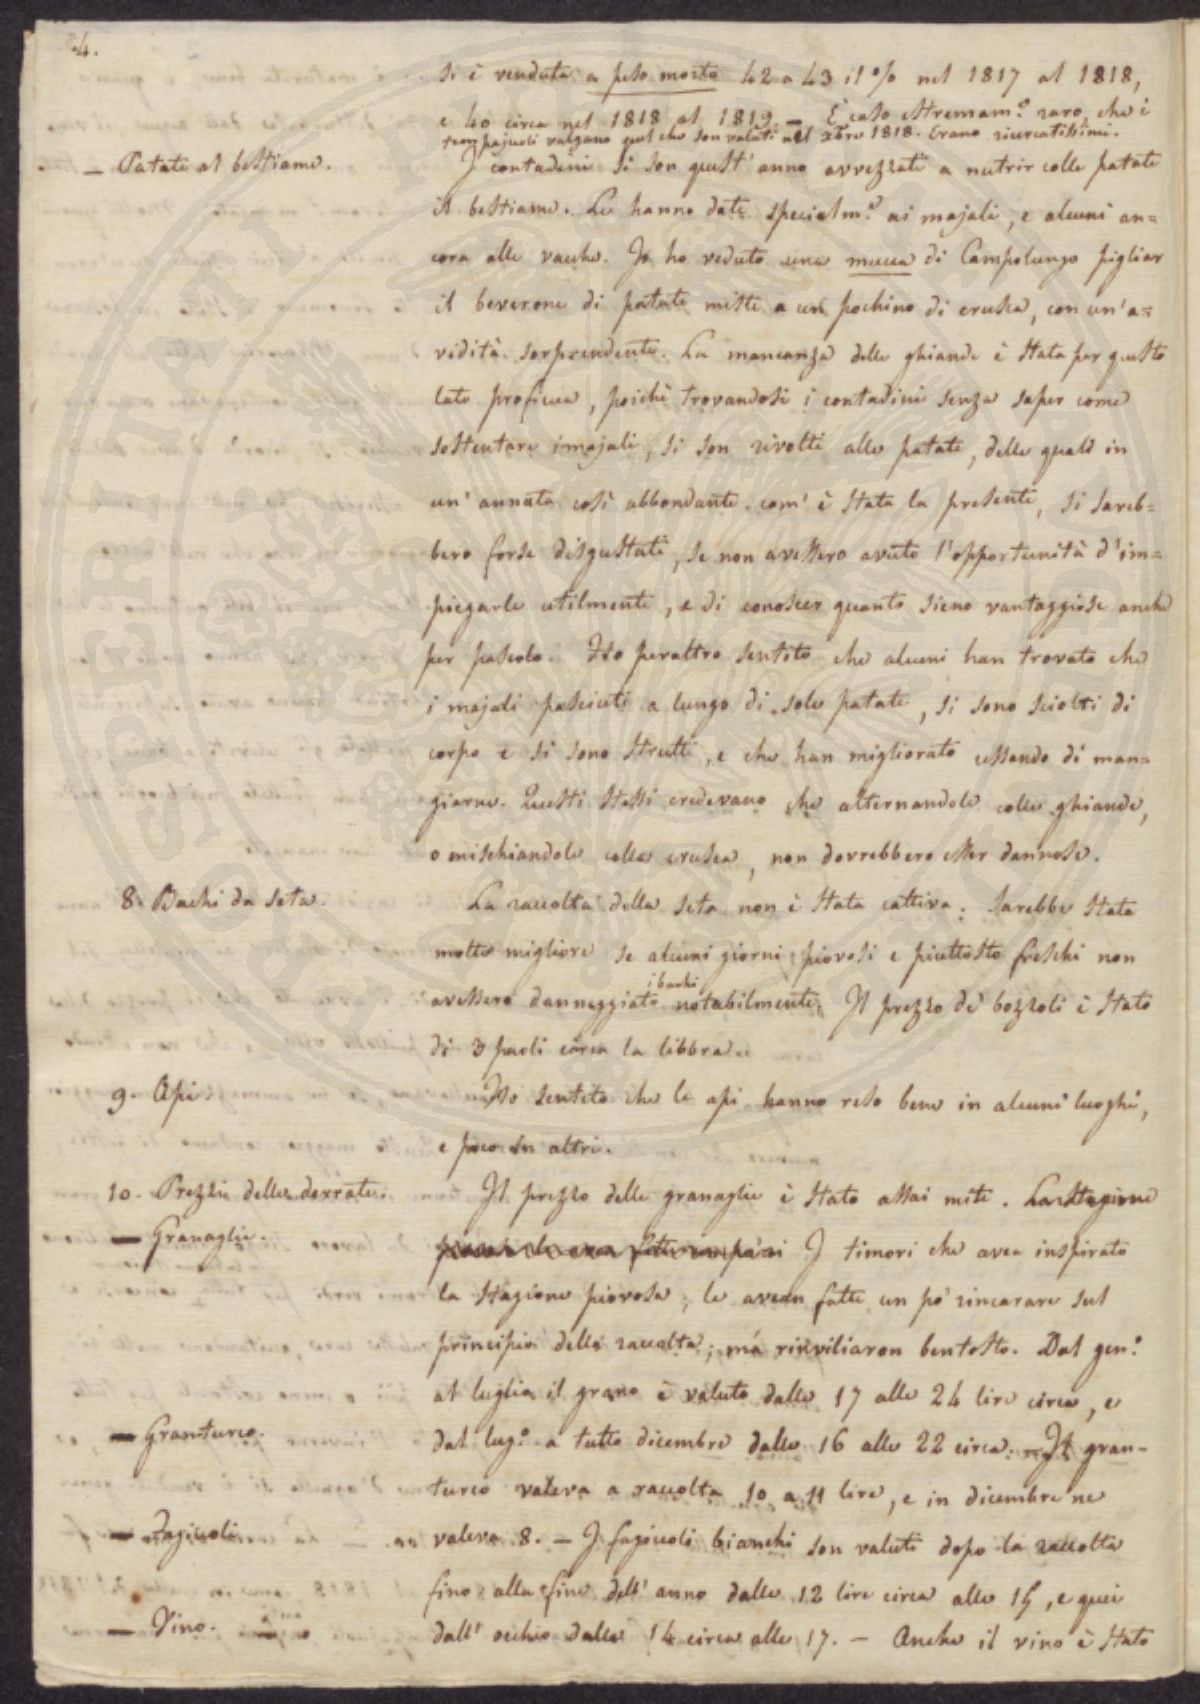 4.
si è venduta a peso morto 42 a 43 il % nel 1817 al 1818,
e 40 circa nel 1818 al 1819. — È caso estremam.e raro, che i
tempajuoli valgano quel che son valuti nel Xbre 1818. Erano ricercatissimi.
— Patate al bestiame.
I contadini si son quest' anno avvezzati a nutrir colle patate
il bestiame. Le hanno date specialm.e ai majali, e alcuni an=
cora alle vacche. Io ho veduto una mucca di Campolungo pigliar
il beverone di patate miste a un pochino di crusca, con un'a=
vidità sorprendente. La mancanza delle ghiande è stata per questo
lato proficua, poichè trovandosi i contadini senza saper come
sostentare i majali, si son rivolti alle patate, delle quali in
un' annata così abbondante com' è stata la presente, si sareb=
bero forse disgustati, se non avessero avuto l'opportunità d'im=
piegarle utilmente, e di conoscer quanto sieno vantaggiose anche
per pascolo. Ho peraltro sentito che alcuni han trovato che
i majali pasciuti a lungo di sole patate, si sono sciolti di
corpo e si sono strutti, e che han migliorato cessando di man=
giarne. Questi stessi credevano che alternandole colle ghiande,
o mischiandole colla crusca, non dovrebbero esser dannose.
8. Bachi da seta.
La raccolta della seta non è stata cattiva. Sarebbe stata
molto migliore se alcuni giorni piovosi e piuttosto freschi non
i bachi
avessero danneggiato notabilmente. Il prezzo de' bozzoli è stato
di 3 paoli circa la libbra.
9. Api.
Ho sentito che le api hanno reso bene in alcuni luoghi,
e poco in altri.
10. Prezzi delle derrate.
Il prezzo delle granaglie è stato assai mite. La stagione
— Granaglie.
I timori che avea inspirato
la stagione piovosa, le avean fatte un po' rincarare sul
principio della raccolta; ma rinviliaron bentosto. Dal gen.o
al luglio il grano è valuto dalle 17 alle 24 lire circa, e
— Granturco.
dal lug.o a tutto dicembre dalle 16 alle 22 circa. — Il gran=
turco valeva a raccolta 10 a 11 lire, e in dicembre ne
— Fagiuoli
valeva 8. — I fagiuoli bianchi son valuti dopo la raccolta
fino alla fine dell' anno dalle 12 lire circa alle 15, e quei
— Vino.
dall' occhio dalle 14 circa alle 17. — Anche il vino è stato